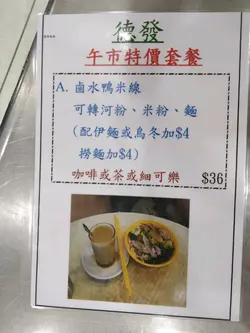 德發
午市特價套餐
A. 鹵水鴨米線
可轉河粉、米粉、麵
(配伊麵或烏冬加$4
撈麵加$4)
咖啡或茶或細可樂 $36